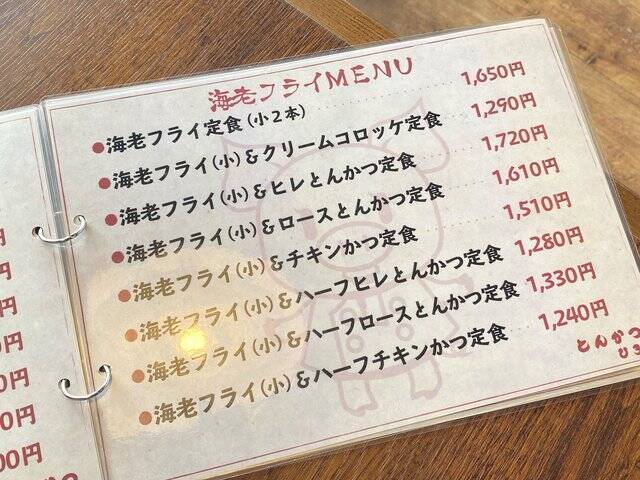 海老フライMENU
●海老フライ定食(小2本) 1,650円
●海老フライ(小)&クリームコロッケ定食 1,290円
●海老フライ(小)&ヒレとんかつ定食 1,720円
●海老フライ(小)&ロースとんかつ定食 1,610円
●海老フライ(小)&チキンかつ定食 1,510円
●海老フライ(小)&ハーフヒレとんかつ定食 1,280円
●海老フライ(小)&ハーフロースとんかつ定食 1,330円
●海老フライ(小)&ハーフチキンかつ定食 1,240円
とんかつ